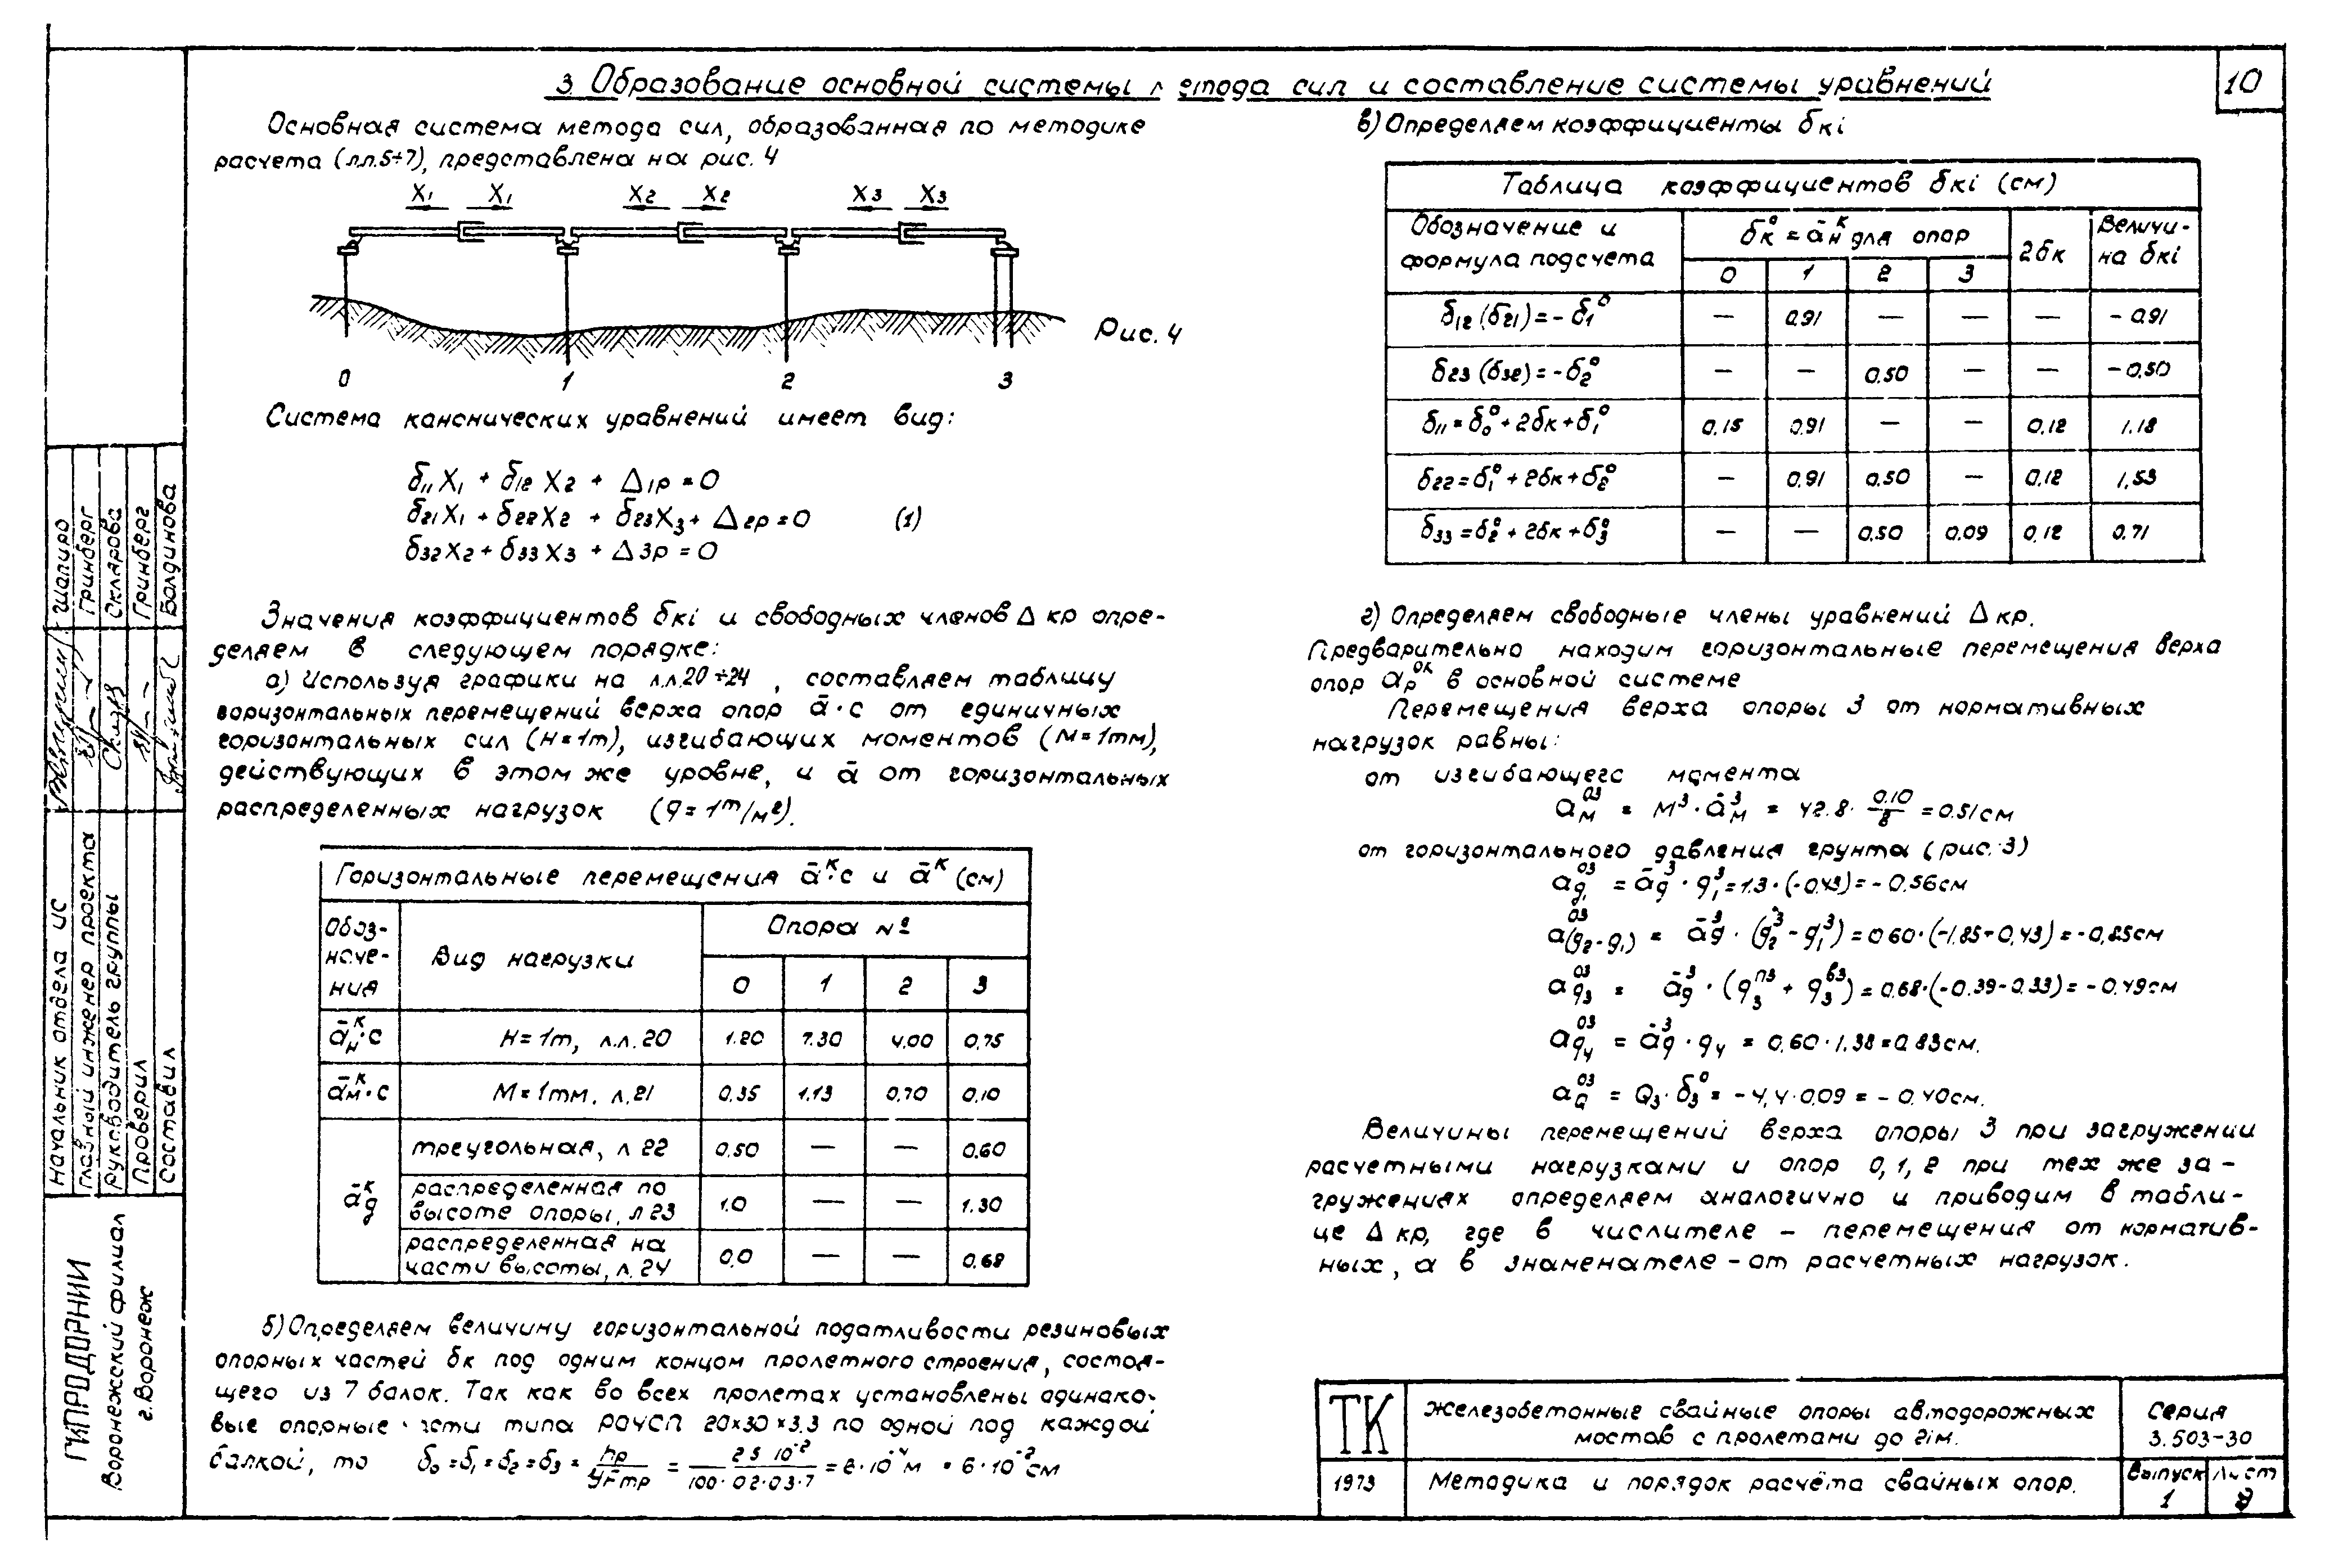 3. Образование основной системы метода сил и составление системы уравнений
10
Основная система метода сил, образованная по методике
расчета (л.л.5÷7), представлена на рис. 4
X₁ X₁ X₂ X₂ X₃ X₃
Рис. 4
0 1 2 3
Система канонических уравнений имеет вид:
δ₁₁X₁ + δ₁₂X₂ + Δ₁р = 0
δ₂₁X₁ + δ₂₂X₂ + δ₂₃X₃ + Δ₂р = 0 (1)
δ₃₂X₂ + δ₃₃X₃ + Δ₃р = 0
Значения коэффициентов δкi и свободных членов Δ кр опре-
деляем в следующем порядке:
а) Используя графики на л.л.20÷24, составляем таблицу
горизонтальных перемещений верха опор ā·c от единичных
горизонтальных сил (H=1т), изгибающих моментов (M=1тм),
действующих в этом же уровне, и ā от горизонтальных
распределенных нагрузок (q=1т/м²).
Горизонтальные перемещения āᴷ·c и āᴷ (см)
Обоз-
наче-
ния
Вид нагрузки
Опора №
0 1 2 3
āᴷн·c H=1т, л.л.20 1.20 7.30 4.00 0,75
āᴷм·c M=1тм. л.21 0,35 1.13 0,70 0,10
āᴷq
треугольная, л 22 0,50 — — 0.60
распределенная по
высоте опоры, л 23 1.0 — — 1.30
распределенная на
части высоты, л. 24 0,0 — — 0.68
б) Определяем величину горизонтальной податливости резиновых
опорных частей δк под одним концом пролетного строения, состоя-
щего из 7 балок. Так как во всех пролетах установлены одинако-
вые опорные части типа РОЧСП 20×30×3.3 по одной под каждой
балкой, то δ₀ = δ₁ = δ₂ = δ₃ = hр / γFmр = 2 5 10⁻² / 100·02·03·7 = 6·10⁻⁴м = 6·10⁻²см
в) Определяем коэффициенты δкi
Таблица коэффициентов δкi (см)
Обозначение и
формула подсчета
δ⁰к = āᴷн для опор
0 1 2 3
2δк
Величи-
на δкi
δ₁₂(δ₂₁) = -δ₁⁰ — 0.91 — — — -0.91
δ₂₃(δ₃₂) = -δ₂⁰ — — 0.50 — — -0,50
δ₁₁ = δ₀⁰ + 2δк + δ₁⁰ 0.15 0.91 — — 0.12 1.18
δ₂₂ = δ₁⁰ + 2δк + δ₂⁰ — 0.91 0.50 — 0.12 1,53
δ₃₃ = δ₂⁰ + 2δк + δ₃⁰ — — 0.50 0.09 0,12 0.71
г) Определяем свободные члены уравнений Δ кр.
Предварительно находим горизонтальные перемещения верха
опор aрᵒᴷ в основной системе
Перемещения верха опоры 3 от нормативных
нагрузок равны:
от изгибающего момента
a⁰³м = M³·ā³м = 42.8·0.10/8 = 0.51см
от горизонтального давления грунта (рис. 3)
a⁰³q₁ = ā³q·q³₁ = 1.3·(-0.43) = -0.56см
a⁰³(q₂-q₁) = ā³q·(q³₂-q³₁) = 0.60·(-1.85+0,43) = -0,85см
a⁰³q₃ = ā³q·(q₃ᴨ³ + q₃ᵇ³) = 0.68·(-0.39-0.33) = -0.49см
a⁰³q₄ = ā³q·q₄ = 0,60·1.38 = 0.83см.
a⁰³Q = Q₃·δ₃⁰ = -4,4·0.09 = -0.40см.
Величины перемещений верха опоры 3 при загружении
расчетными нагрузками и опор 0, 1, 2 при тех же за-
гружениях определяем аналогично и приводим в табли-
це Δ кр, где в числителе – перемещения от норматив-
ных, а в знаменателе – от расчетных нагрузок.
ТК
1973
Железобетонные свайные опоры автодорожных
мостов с пролетами до 21м.
Серия
3.503-30
Методика и порядок расчёта свайных опор.
Выпуск
1
Лист
Начальник отдела ИС Шапиро
Главный инженер проекта Гринберг
Руководитель группы Склярова
Проверил Гринберг
Составил Болдинова
ГИПРОДОРНИИ
Воронежский филиал
г. Воронеж